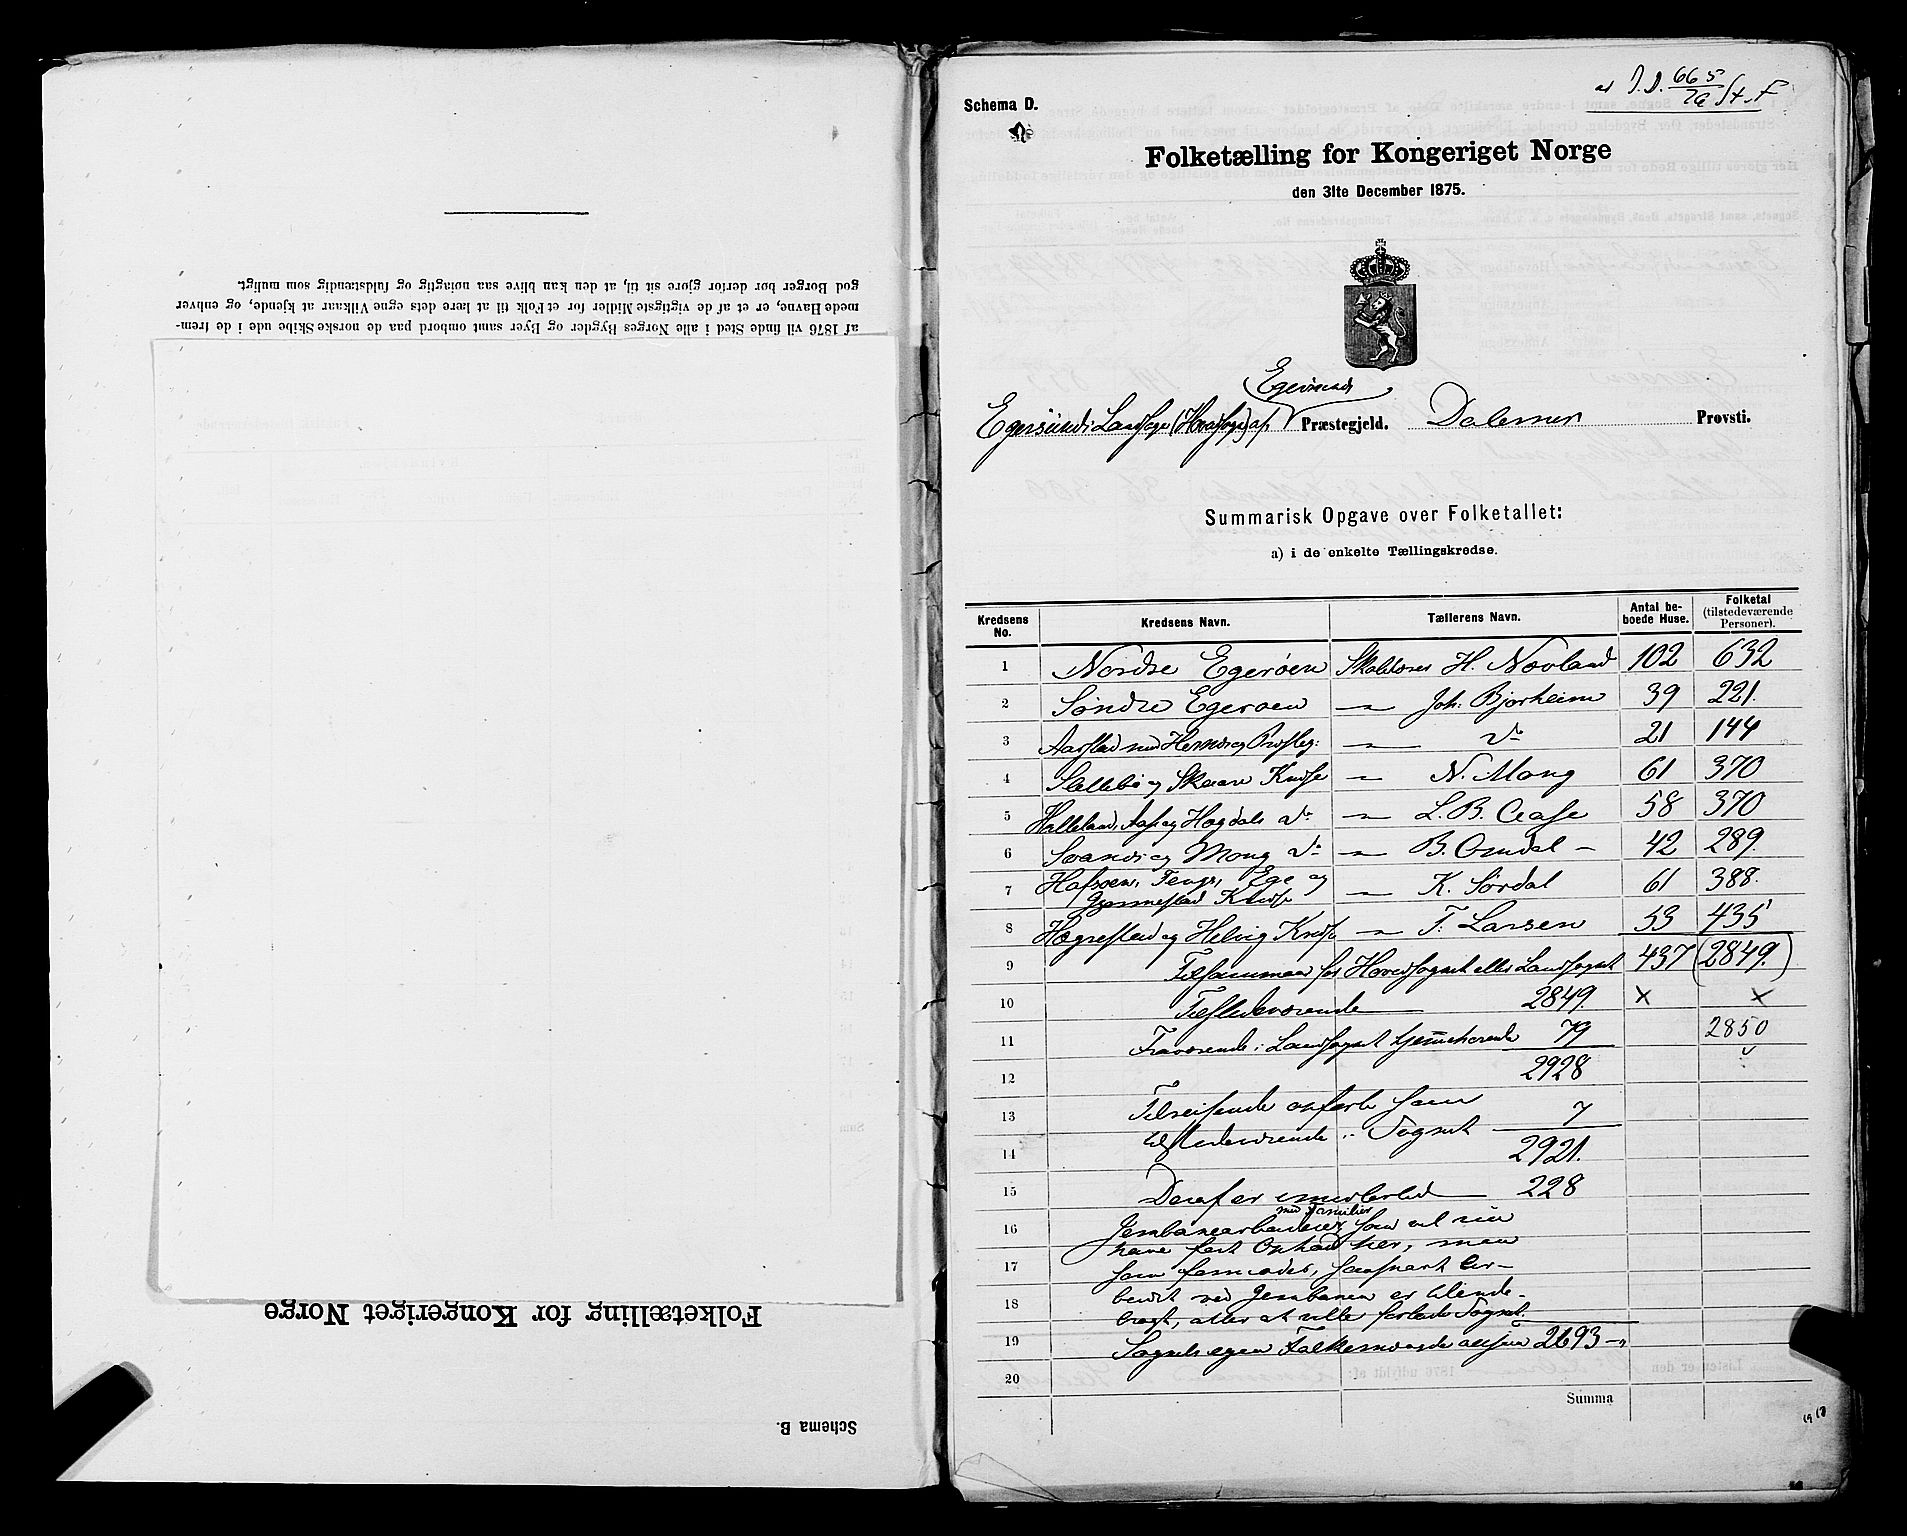 af 1876 vil finde Sted i alle Norges Bygder og Byer samt ombord paa de norske Skibe ude i de frem-
mede Havne, er et af de vigtigste Midler for et Folk til at lære dets egne Vilkaar at kjende, og enhver
god Borger bør derfor gjøre sit til, at den kan blive saa nøiagtig og fuldstændig som muligt.
Schema B.
Folketælling for Kongeriget Norge
665
76
Schema D.
Folketælling for Kongeriget Norge
den 31te December 1875.
Egersund
Egersunds Landsogn (Hovedsogn) af Præstegjeld. Dalernes Provsti.
Summarisk Opgave over Folketallet:
a) i de enkelte Tællingskredse.
Kredsens No. Kredsens Navn. Tællerens Navn. Antal be-boede Huse. Folketal (tilstedeværende Personer).
1 Nordre Egerøen Skolelærer H. Nævland 102 632
2 Søndre Egerøen — Joh. Bjørheim 39 221.
3 Aarstad med — do 21 144
4 Slettebø og Skaare Kreds — N. Mong 61 370
5 Helleland, Aase og Hægdals do — L. B. Aase 58 370
6 Svanes og Mong do — B. Omdal — 42 289.
7 Hafsøen, Tengs, Ege og Gjermestad Kreds — K. Sørdal 61 388.
8 Hægrestad og Helvig Kreds — T. Larsen 53 435
9 Tilsammen for Hovedsognet eller Landsognet 437 (2849.)
10 Tilstedeværende 2849. × ×
11 Fraværende i Landsognet hjemmehørende 79 2850
12 2928
13 Tilreisende opførte som 7
tilstedeværende i Sognet
14 2921.
15 Deraf er imidlertid 228
med Familier
16 Jernbanearbeidere som vel nu
have fast Ophold her, men
17 som formodes, saasnart Ar-
18 beidet ved Jernbanen er tilende-
bragt, atter at ville forlade Sognet.
19 Sognets egen Folkemængde altsaa 2693
20
Summa